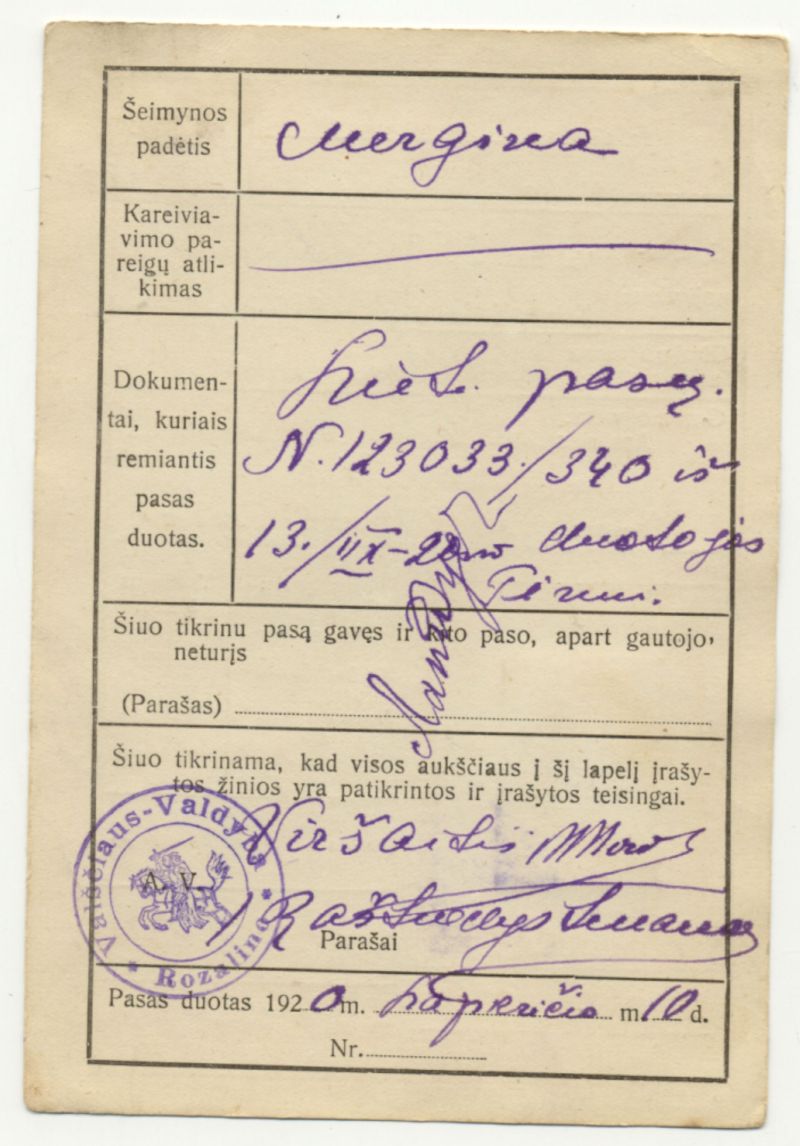 Šeimynos
padėtis
Mergina
Kareivia-
vimo pa-
reigų atli-
kimas
Dokumen-
tai, kuriais
remiantis
pasas
duotas.
pasą.
N. 123033./340 iš
13./
Šiuo tikrinu pasą gavęs ir kito paso, apart gautojo,
neturįs
(Parašas)
Šiuo tikrinama, kad visos aukščiaus į šį lapelį įrašy-
tos žinios yra patikrintos ir įrašytos teisingai.
Valščiaus-Valdyba
Rozalino
A. V.
Viršaitis
Raštvedys
Parašai
Pasas duotas 1920 m. Lapkričio m. 10 d.
Nr.